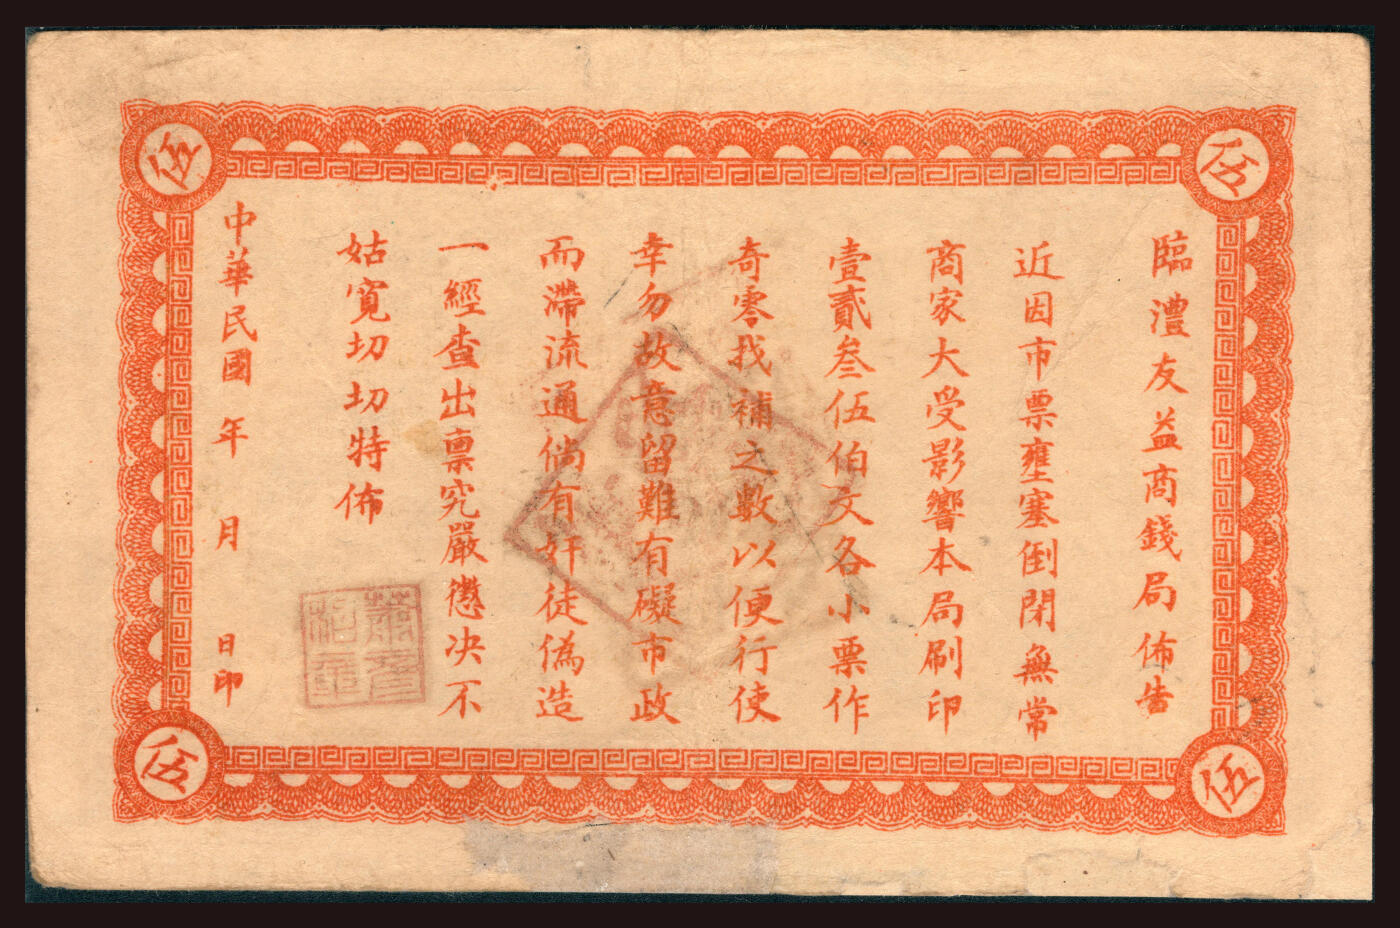 伍
伍
臨澧友益商錢局佈告
近因市票壅塞倒閉無常
商家大受影響本局刷印
壹貳叁伍伯文各小票作
奇零找補之數以便行使
幸勿故意留難有礙市政
而滯流通倘有奸徒偽造
一經查出禀究嚴懲决不
姑寬切切特佈
中華民國 年 月 日印
伍
伍